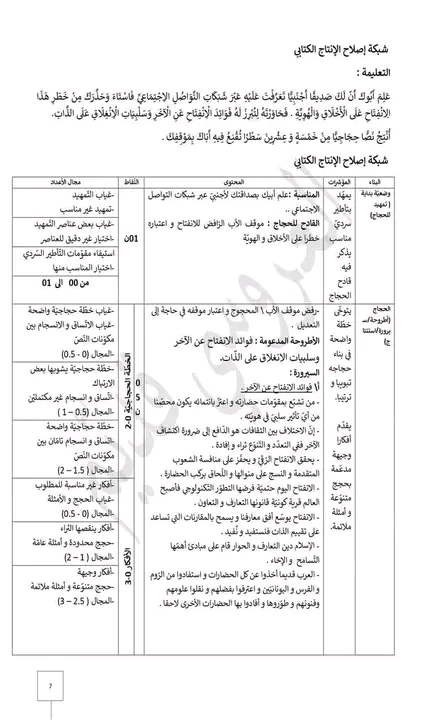 شبكة إصلاح الإنتاج الكتابي
التعليمة :
عَلِمَ أَبُوكَ أَنَّ لَكَ صَدِيقًا أَجْنَبِيًّا تَعَرَّفْتَ عَلَيْهِ عَبْرَ شَبَكَاتِ التَّوَاصُلِ الِاجْتِمَاعِيِّ فَاسْتَاءَ وَحَذَّرَكَ مِنْ خَطَرِ هَذَا
الِانْفِتَاحِ عَلَى الْأَخْلَاقِ وَالْهُوِيَّةِ . فَحَاوَرْتَهُ لِتُبْرِزَ لَهُ فَوَائِدَ الْاِنْفِتَاحِ عَنِ الْآخَرِ وَسَلْبِيَّاتِ الْاِنْغِلَاقِ عَلَى الذَّاتِ.
أَنْتِجْ نَصًّا حِجَاجِيًّا مِنْ خَمْسَةٍ وَ عِشْرِينَ سَطْرًا تُقْنِعُ فِيهِ أَبَاكَ بِمَوْقِفِكَ .
شبكة إصلاح الإنتاج الكتابي
البناء
المؤشرات
المحتوى
النقاط
مجال الأعداد
وضعيّة بداية
( تمهيد
للحجاج)
يمهّد
بتأطير
سرديّ
مناسب
يذكر
فيه
قادح
الحجاج
المناسبة : علم أبيك بصداقتك لأجنبيّ عبر شبكات التواصل
الاجتماعي ..
القادح للحجاج : موقف الأب الرّافض للانفتاح و اعتباره
خطرا على الأخلاق و الهويّة
01ن
-غياب التّمهيد
-تمهيد غير مناسب
-غياب بعض عناصر التّمهيد
-اختيار غير دقيق للعناصر
استيفاء مقوّمات التّأطير السّردي
-اختيار المناسب منها
من 00 الى 01
الحجاج
يتوخّى
خطّة
واضحة
في بناء
حجاجه
تبويبا و
ترتيبا.
يقدّم
أفكارا
وجيهة
مدعّمة
بحجج
متنوّعة
و أمثلة
ملائمة.
-رفض موقف الأب \ المحجوج و اعتبار موقفه في حاجة إلى
التعديل .
الأطروحة المدعومة : فوائد الانفتاح عن الآخر
وسلبيات الانغلاق على الذّات.
السيرورة :
أ\ فوائد الانفتاح عن الآخر .
- من تشبّع بمقوّمات حضارته و اعتزّ بانتمائه يكون محصّنا
من أيّ تأثير سلبيّ في هويّته .
- إنّ الاختلاف بين الثقافات هو الدّافع إلى ضرورة اكتشاف
الآخر ففي التعدّد و التّنوّع ثراء و إفادة .
- يحقق الانفتاح الرّقيّ و يحفّز على منافسة الشعوب
المتقدمة و النسج على منوالها و اللّحاق بركب الحضارة .
- الانفتاح اليوم حتميّة فرضها التطوّر التّكنولوجي فأصبح
العالم قرية كونيّة قانونها التعارف و التعاون .
- الانفتاح يوسّع أفق معارفنا و يسمح بالمقارنات التي تساعد
على تقييم الذات فنستفيد و نُفيد .
- الإسلام دين التعارف و الحوار قام على مبادئ أهمّها
التّسامح و الإخاء .
- العرب قديما أخذوا عن كل الحضارات و استفادوا من الرّوم
و الفرس و اليونانيّين و اعترفوا بفضلهم و نقلوا علومهم
وفنونهم و طوّروها و أفادوا بها الحضارات الأخرى لاحقا .
الخطّة الحجاجيّة 0-2
الأفكار 0-3
-غياب خطّة حجاجيّة واضحة
-غياب الاتّساق و الانسجام بين
مكوّنات النّصّ
-المجال (0 - 0.5)
-خطّة حجاجيّة يشوبها بعض
الارتباك
-اتّساق و انسجام غير مكتملين
-المجال (0.5 – 1)
-خطّة حجاجيّة واضحة
-اتساق و انسجام تامّان بين
مكونات النّص
-المجال (1.5 – 2)
-أفكار غير مناسبة للمطلوب
-غياب الحجج و الأمثلة
-المجال (0 - 0.5)
-أفكار ينقصها الثّراء
-حجج محدودة و أمثلة عامّة
-المجال (1 – 2)
-أفكار وجيهة
-حجج متنوّعة و أمثلة ملائمة
-المجال ( 2.5 – 3)
7